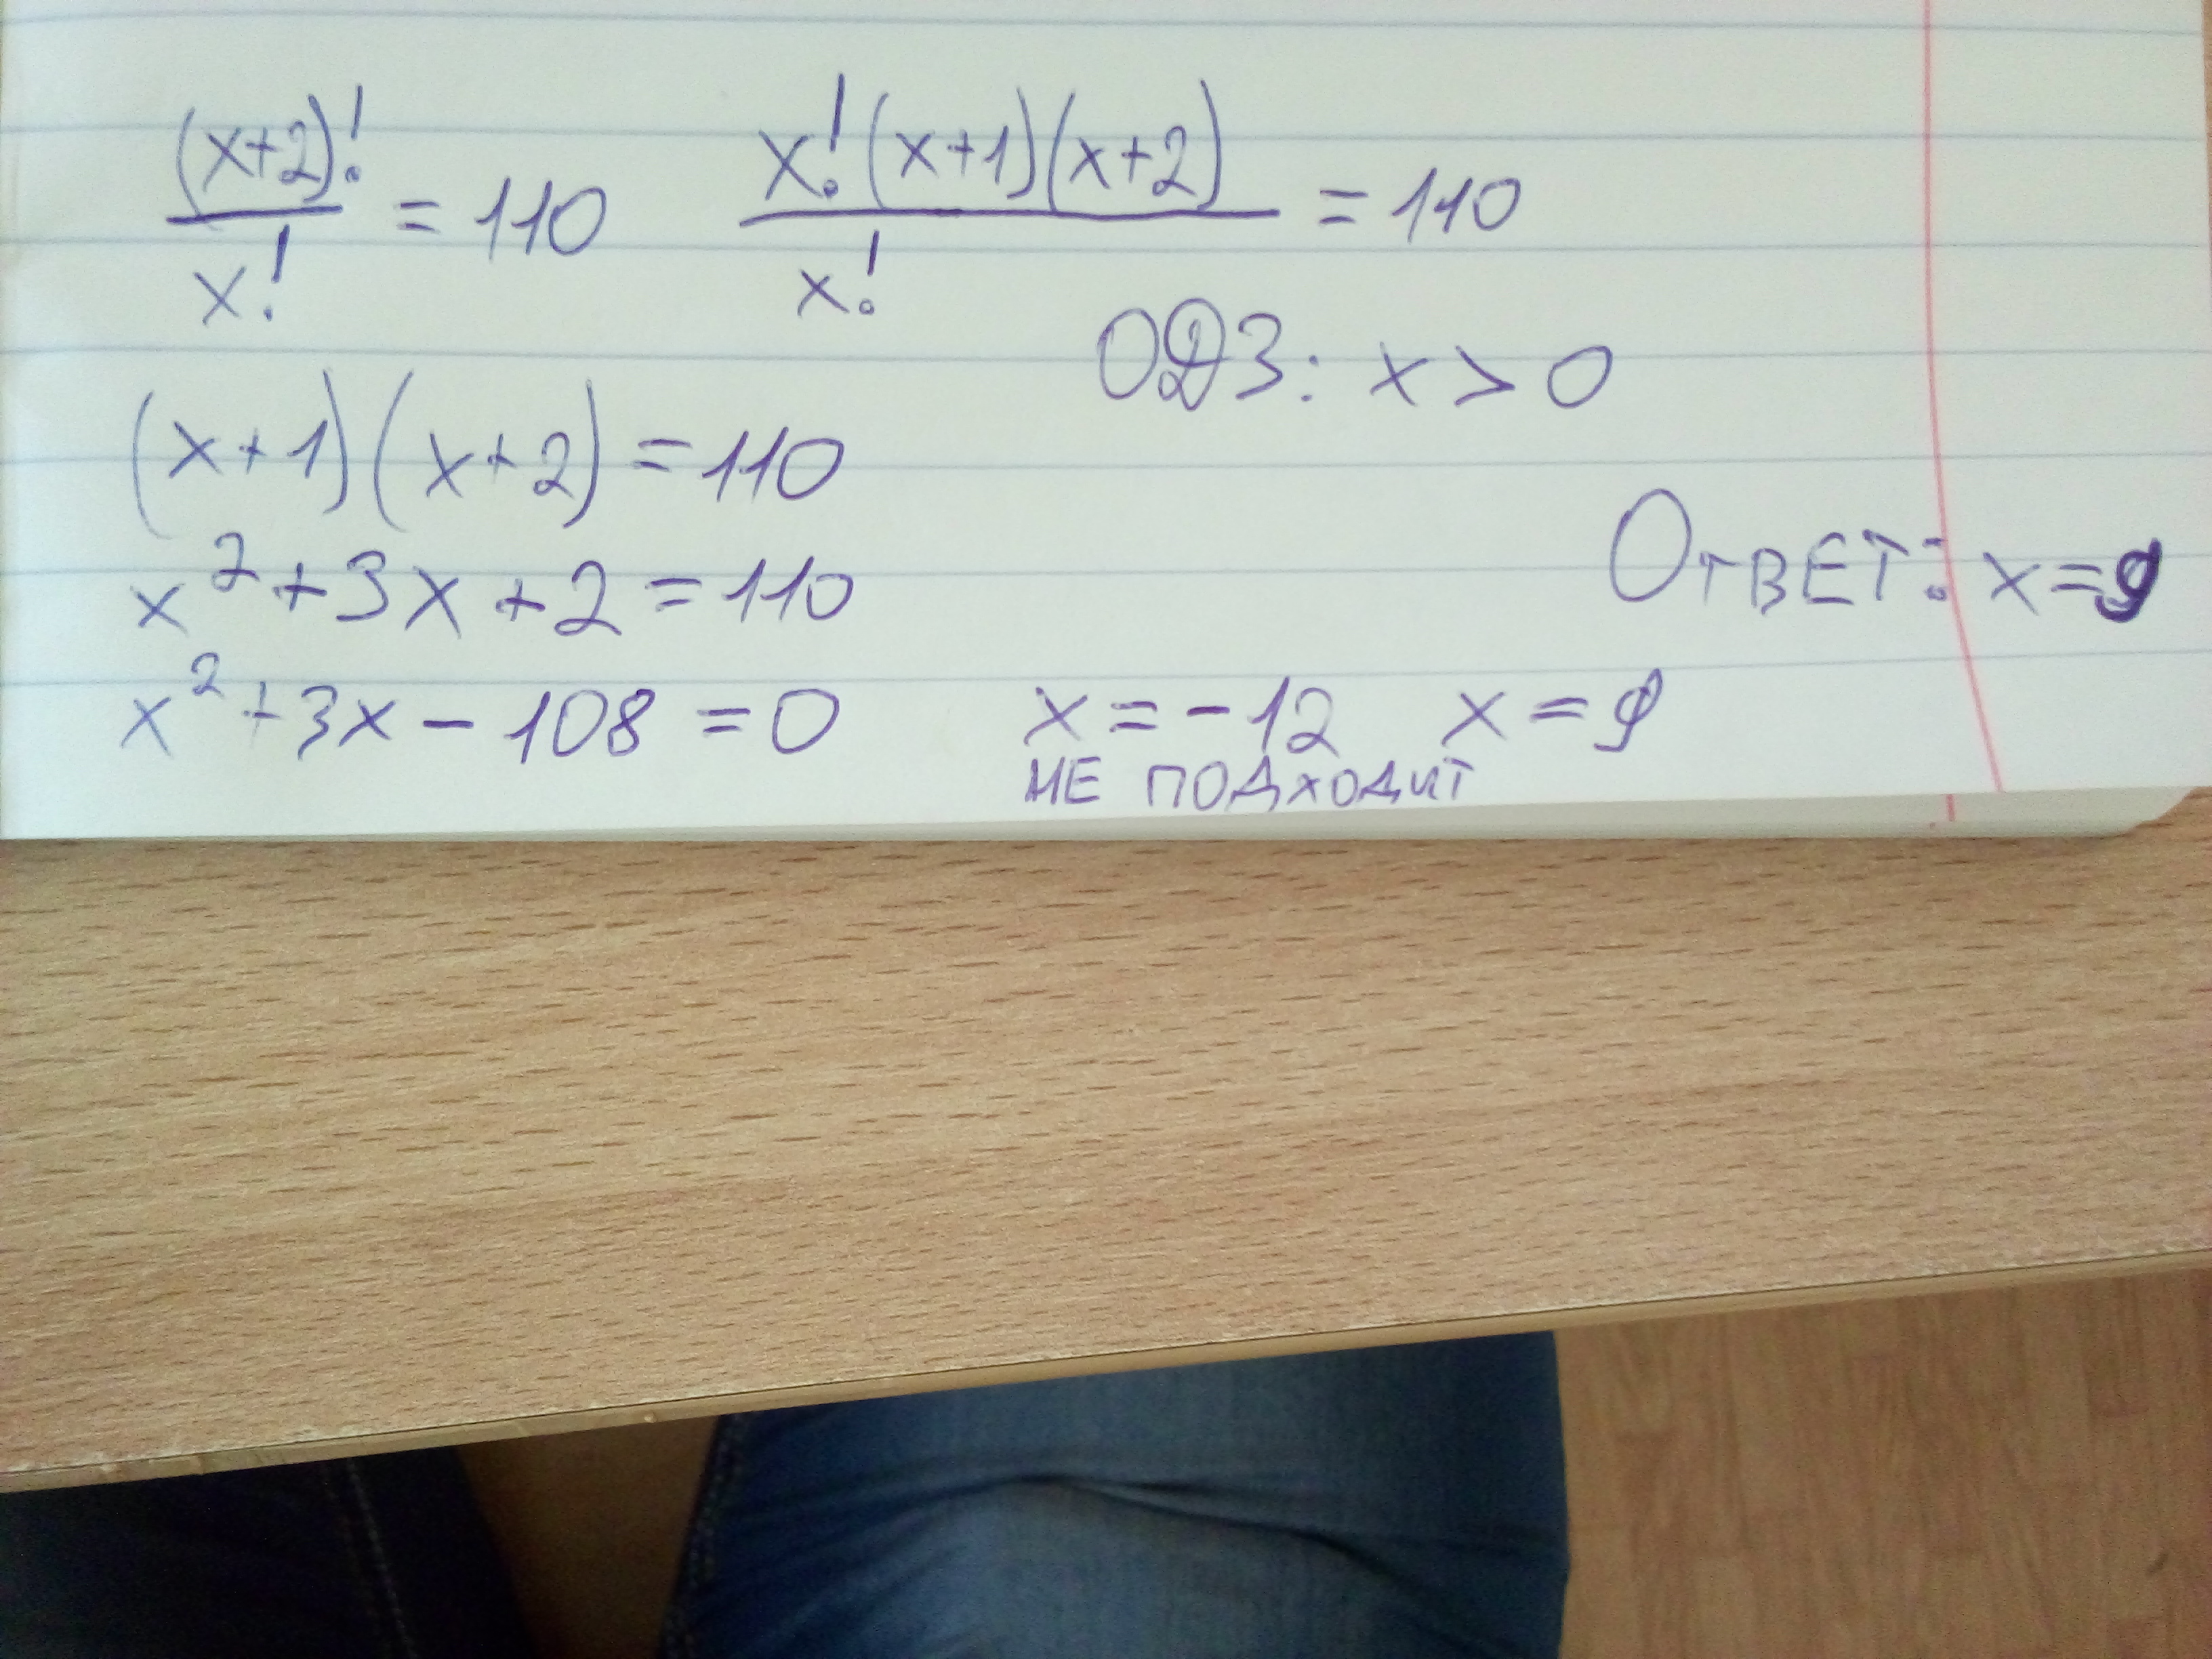 (x+2)!/x! = 110 x!(x+1)(x+2)/x! = 110
ОДЗ: x > 0
(x+1)(x+2) = 110
x² + 3x + 2 = 110
Ответ: x = 9
x² + 3x − 108 = 0 x = −12 x = 9
не подходит